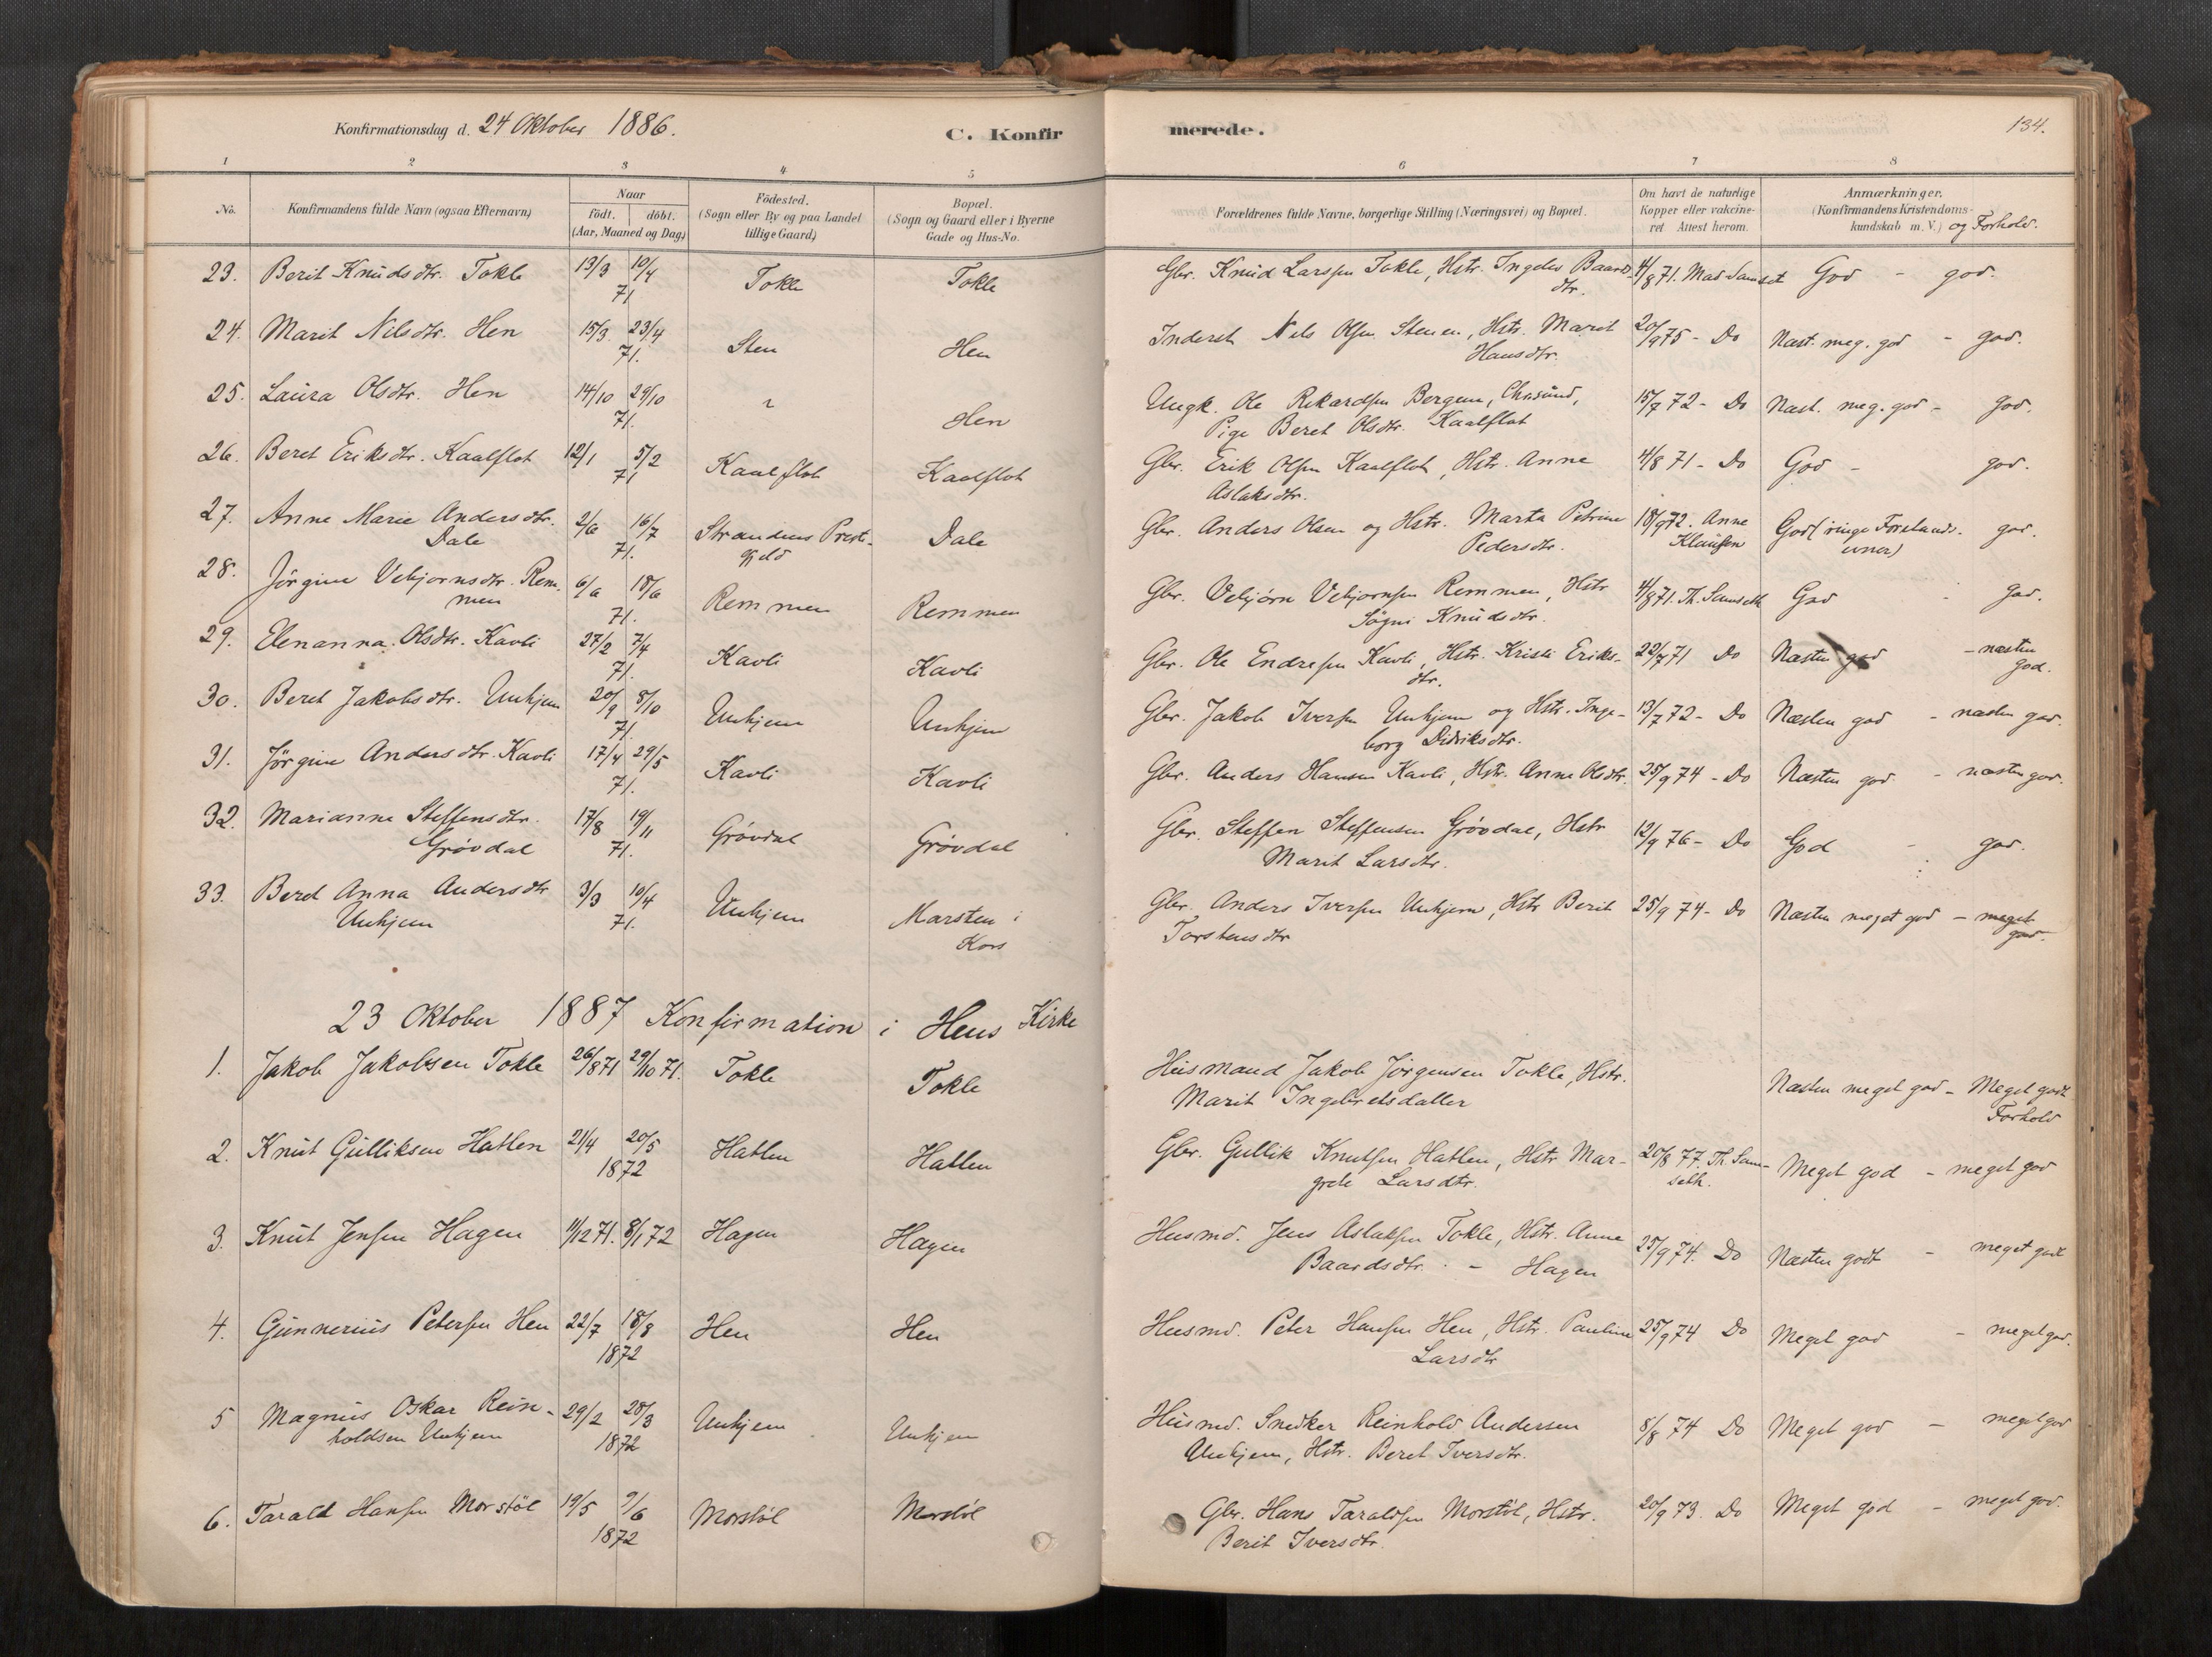 Konfirmationsdag d. 24 Oktober 1886. C. Konfirmerede. 134.
1 2 3 4 5 6 7 8
No. Konfirmandens fulde Navn (ogsaa Efternavn) Naar födt. döbt. (Aar, Maaned og Dag.) Födested. (Sogn eller By og paa Landet tillige Gaard) Bopæl. (Sogn og Gaard eller i Byerne Gade og Hus-No. Forældrenes fulde Navne, borgerlige Stilling (Næringsvei) og Bopæl. Om havt de naturlige Kopper eller vakcineret Attest herom. Anmærkninger. (Konfirmandens Kristendomskundskab m. V.) og Forhold.
23. Berit Knudsdtr. Tokle 13/3 10/4 Tokle Tokle Gbr. Knud Larssen Tokle, Hstr. Ingeles Baards- 4/8 71. Mad. Samset God - god.
71 dtr.
24. Marit Nilsdtr. Hen 15/3 23/4 Sten Hen Inderst Nils Olsen Stenen, Hstr. Marit 20/9 75 - Do Næst. meg. god - god.
71. Hansdtr.
25. Laura Olsdtr. Hen 14/10 29/10 Hen Ungk. Ole Rikardsen Bergem, Chrsund, 15/7 72 - Do Næst. meg. god - god.
71. Pige Beret Olsdtr. Kaalflot
26. Beret Eriksdtr. Kaalflot 12/1 5/2 Kaalflot Kaalflot Gbr. Erik Olsen Kaalflot, Hstr. Anne 4/8 71 - Do God - god.
71 Aslaksdtr.
27. Anne Marie Andersdtr. 2/6 16/7 Strandens Preste- Dale Gbr. Anders Olsen og Hstr. Marta Petrine 18/9 72. Anne God (ringe Forstands- god.
Dale 71. gjeld Pedersdtr. Klausen evner)
28. Jörgine Vebjornsdtr. Rem- 6/6 18/6 Remmen Remmen Gbr. Vebjörn Vebjornsen Remmen, Hstr 4/8 71. Th. Samseth God - god.
men 71. Sögni Knudsdtr.
29. Elenanna Olsdtr. Kavli 27/2 7/4 Kavli Kavli Gbr. Ole Endresen Kavli, Hstr. Kristi Eriks- 22/7 71 Do Næsten god - næsten
71. dtr. god.
30. Beret Jakobsdtr. Unhjem 20/9 8/10 Unhjem Unhjem Gbr. Jakob Iversen Unhjem og Hstr. Inge- 13/7 72 - Do Næsten god - næsten god.
71. borg Didriksdtr.
31. Jörgine Andersdtr. Kavli 17/4 29/5 Kavli Kavli Gbr. Anders Hansen Kavli, Hstr. Anne Olsdtr. 25/9 74 - Do Næsten god - næsten god.
71.
32. Marianne Steffensdtr. 17/8 19/11 Grövdal Grövdal Gbr. Steffen Steffensen Grövdal, Hstr 12/9 76 - Do God - god.
Grövdal 71. Marit Larsdtr.
33. Beret Anna Andersdtr 3/3 10/4 Unhjem Marsten i Gbr. Anders Iversen Unhjem, Hstr Berit 25/9 74 - Do Næsten meget god - meget
Unhjem 71. Kors Torstensdtr god.
23 Oktober 1887 Konfirmation i Hens Kirke
1. Jakob Jakobsen Tokle 26/8 71 29/10 71. Tokle Tokle Husmand Jakob Jörgensen Tokle, Hstr. Næsten meget god - Meget godt
Marit Ingebretsdatter Forhold
2. Knut Gulliksen Hatlen 21/4 20/5 Hatlen Hatlen Gbr. Gullik Knutsen Hatlen, Hstr Mar- 20/8 77. Th. Sam- Meget god - meget god
1872 grete Larsdtr. seth.
3. Knut Jensen Hagen 11/12 71. 8/1 72 Hagen Hagen Husmd. Jens Aslaksen Tokle, Hstr. Anne 25/9 74. Do Næsten godt - meget godt
Baardsdtr. - Hagen
4. Gunnerius Petersen Hen 22/7 18/8 Hen Hen Husmd. Peter Hansen Hen, Hstr. Pauline 25/9 74 Do Meget god - meget god.
1872 Larsdtr
5 Magnus Oskar Rein- 29/2 28/3 Unhjem Unhjem Husmd. Snedker Reinhold Andersen 8/8 74 Do Meget god - meget god
holdsen Unhjem 1872 Unhjem, Hstr. Beret Iversdtr.
6. Tarald Hansen Morstöl 19/5 9/6 Morstöl Morstöl Gbr. Hans Taraldsen Morstöl, Hstr. 20/9 73. Do Meget god - meget god.
1872 Berit Iversdtr.